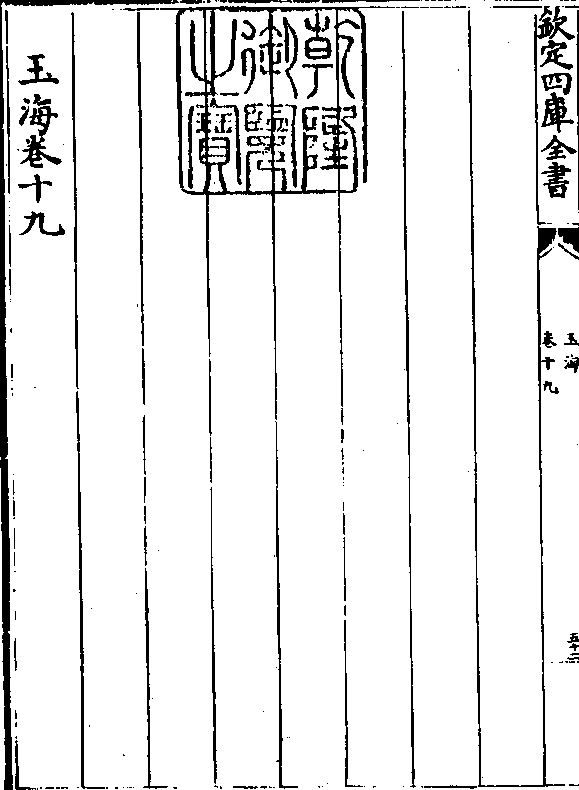 欽定四庫全書
玉海
卷十九
五十二
乾隆
御覽
之寶
玉海卷十九